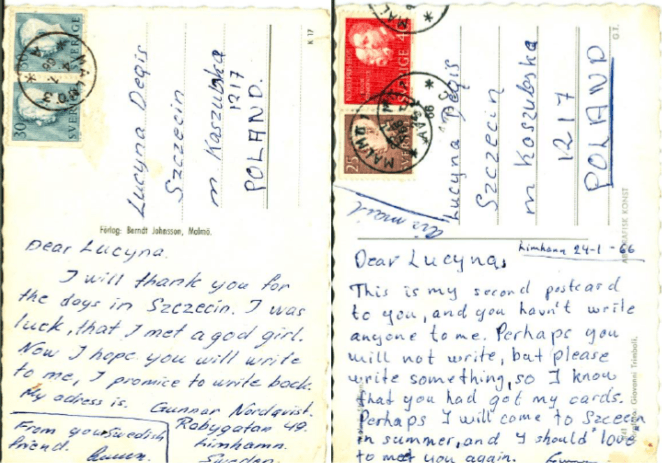 30
SVERIGE
K 17
Lucyna Degis
Szczecin
m Kaszubska
1217
POLAND.
Förlag: Berndt Johansson, Malmö.
Dear Lucyna.
I will thank you for
the days in Szczecin. I was
luck, that I met a god girl.
Now I hope you will write
to me, I promice to write back.
My adress is.
Gunnar Nordqvist.
Rabygatan 49.
Limhamn.
Sweden.
From your Swedish
friend.
SVERIGE 40
25
SVERIGE
MALMÖ
air mail
G.T.
Lucyna Degis
Szczecin
m Kaszubska
1217
POLAND
GRAFISK KONST
Giovanni Trimboli.
Limhamn 24-1-66
Dear Lucyna,
This is my second postcard
to you, and you havn't write
anyone to me. Perhaps you
will not write, but please
write something, so I know
that you had got my cards.
Perhaps I will come to Szcecin
in summer, and I should love
to met you again.